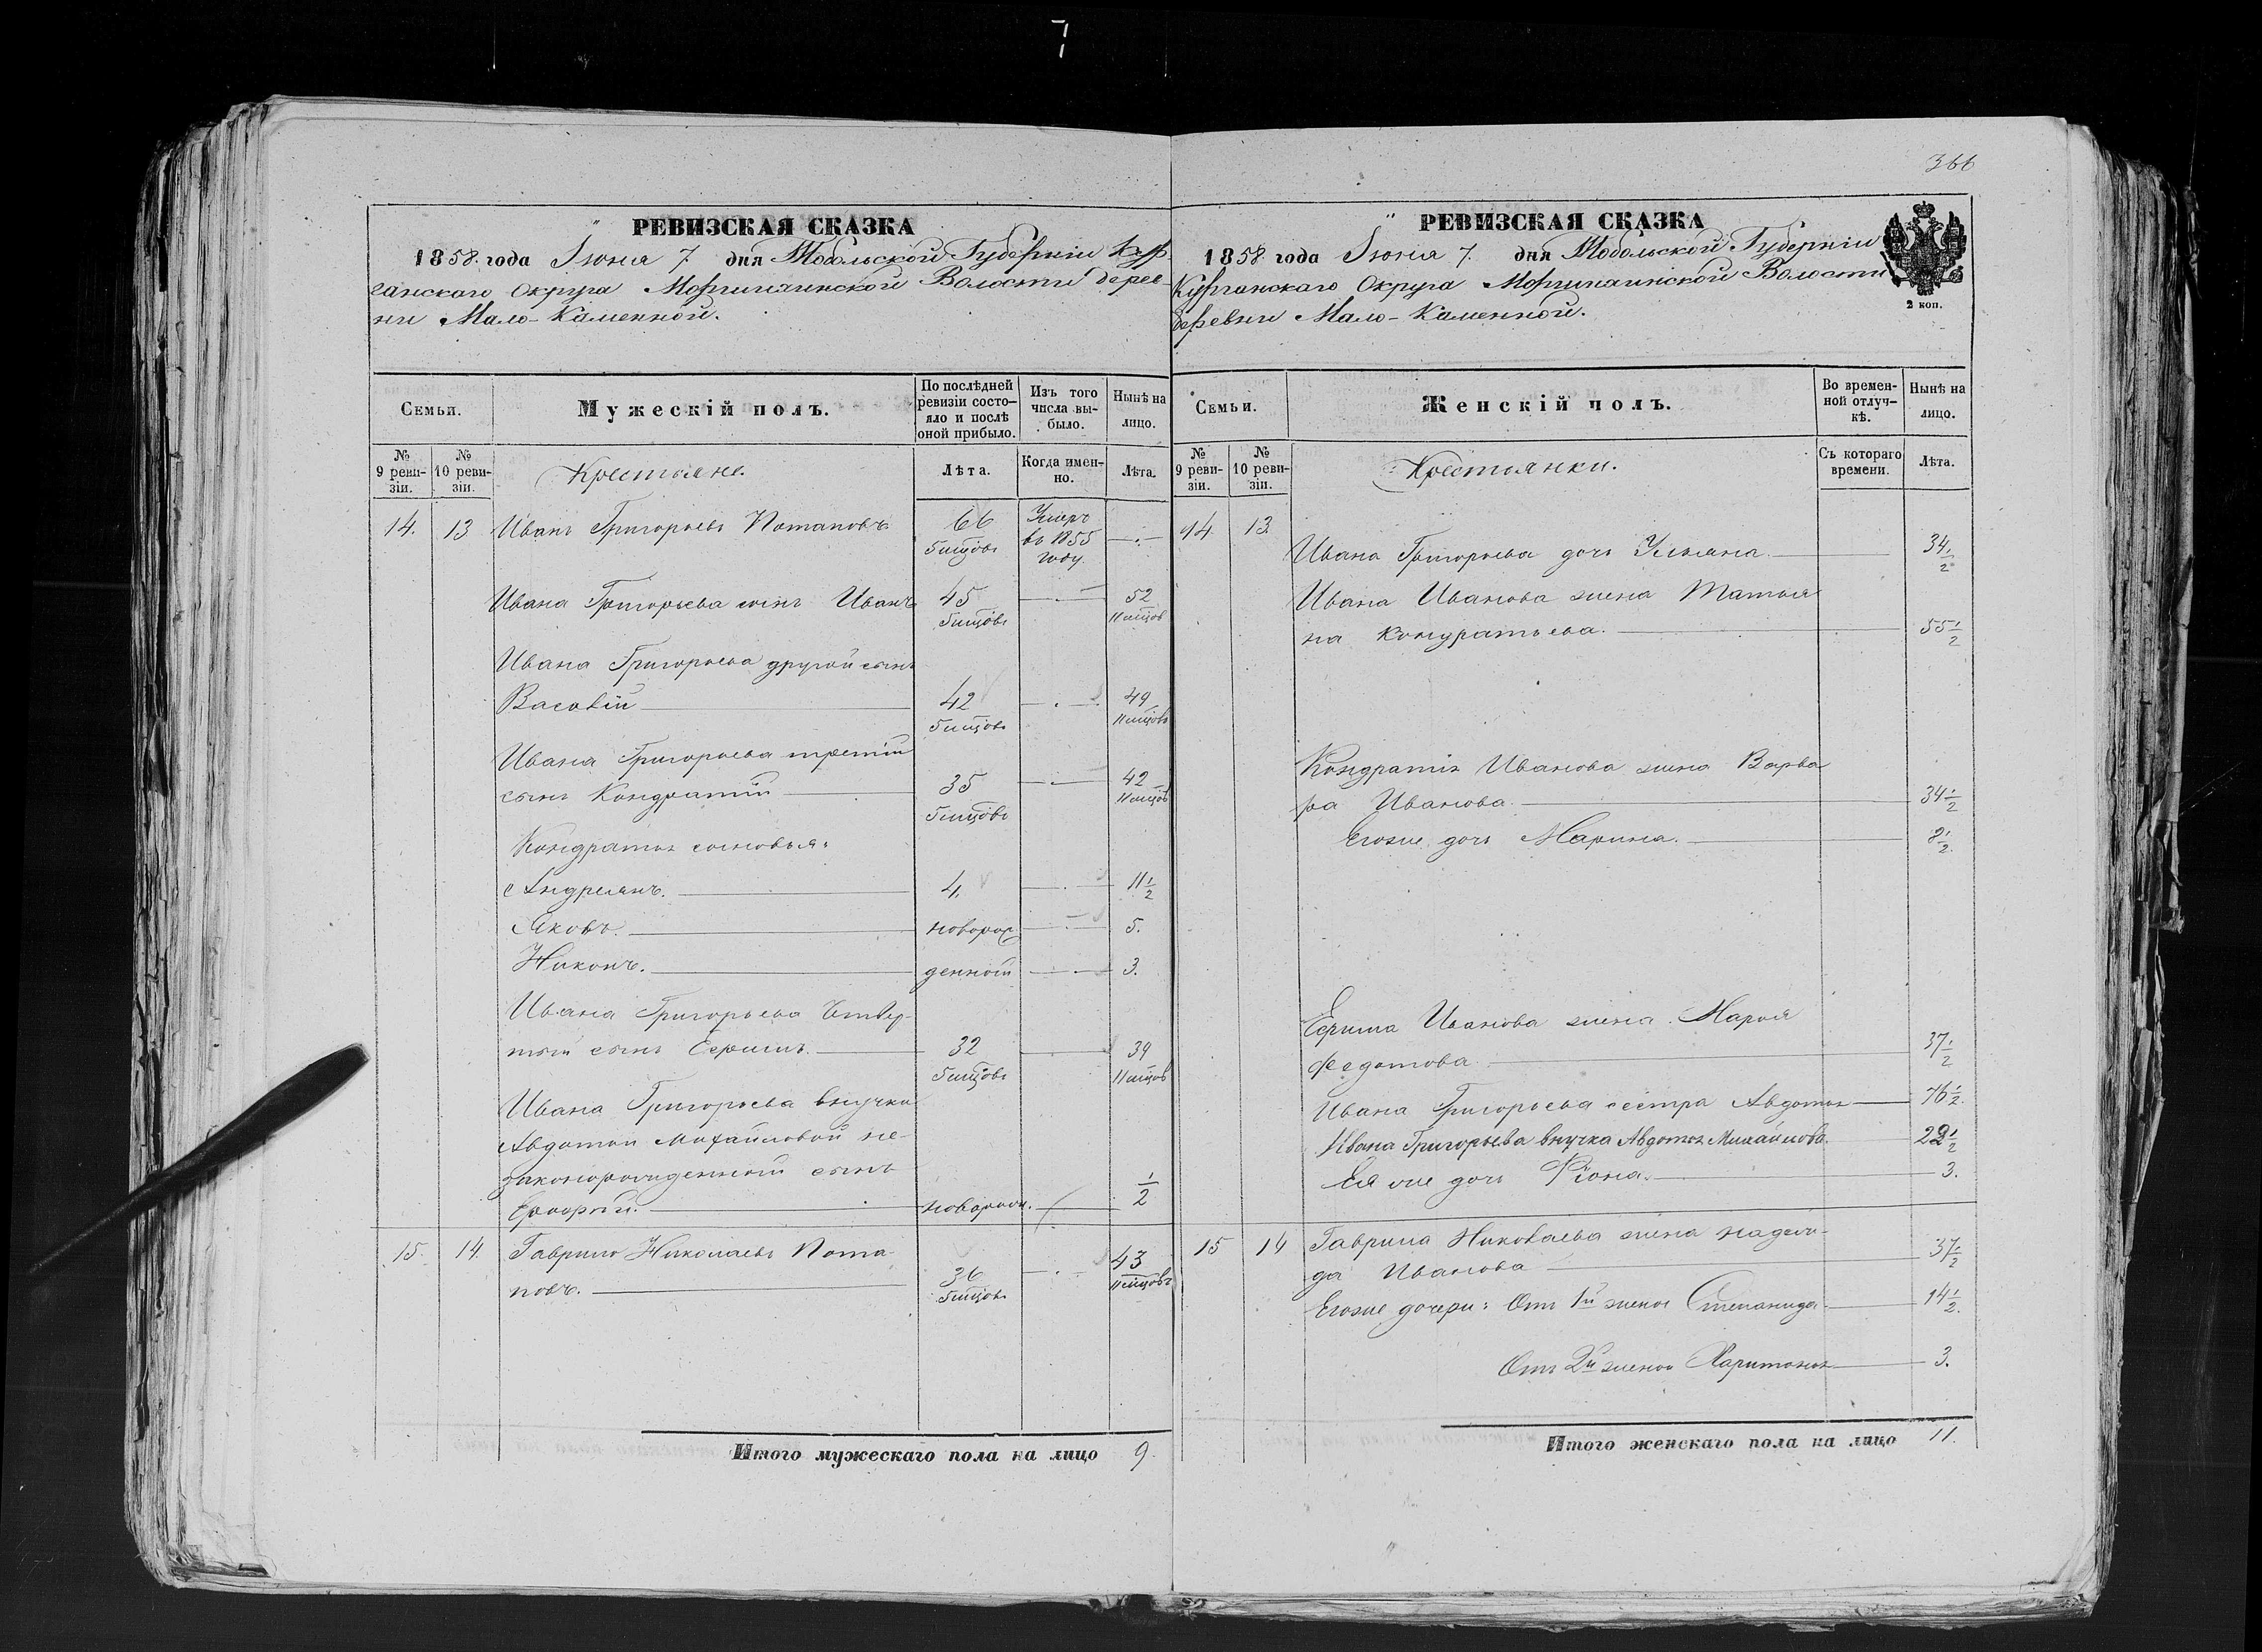 366
РЕВИЗСКАЯ СКАЗКА
1858. года Іюня 7. дня Тобольской Губерніи Кур-
ганскаго Округа Моршихинской Волости дерев-
ни Мало-Каменной.
Семьи.
Мужескій полъ.
По послѣдней ревизіи состояло и послѣ оной прибыло.
Изъ того числа выбыло.
Нынѣ на лицо.
№ 9 ревизіи.
№ 10 ревизіи.
Крестьяне.
Лѣта.
Когда именно.
Лѣта.
14. 13 Иванъ Григорьевъ Потаповъ 66 5 мцовъ Умеръ въ 1855 году
Ивана Григорьева сынъ Иванъ 45 5 мцовъ 52 11 мцов
Ивана Григорьева другой сынъ
Василій 42 5 мцовъ 49 11 мцовъ
Ивана Григорьева третій
сынъ Кондратій 35 5 мцовъ 42 11 мцов
Кондратья сыновья:
Андреянъ. 4. 11 1/2
Яковъ. новорож 5.
Никонъ. денной 3.
Ивана Григорьева Четвер-
тый сынъ Ефимъ. 32 5 мцовъ 39 11 мцов
Ивана Григорьева внучки
Авдотьи Михайловой не-
законорожденный сынъ
новорож. 1/2
15. 14. Гаврило Николаевъ Пота-
повъ. 36 5 мцов 43 11 мцовъ
Итого мужескаго пола на лицо 9.
РЕВИЗСКАЯ СКАЗКА
1858. года Іюня 7. дня Тобольской Губерніи
Курганскаго Округа Моршихинской Волости
деревни Мало-Каменной.
2 коп.
Семьи.
Женскій полъ.
Во временной отлучкѣ.
Нынѣ на лицо.
№ 9 ревизіи.
№ 10 ревизіи.
Крестьянки.
Съ котораго времени.
Лѣта.
14. 13.
Ивана Григорьева дочь Ульяна. 34 1/2
Ивана Иванова жена Татья
на Кондратьева. 55 1/2
Кондратія Иванова жена Варва
ра Иванова. 34 1/2
Егоже дочь Марина. 8 1/2.
Ефима Иванова жена Марья
Федотова 37 1/2
Ивана Григорьева сестра Авдотья 76 1/2.
Ивана Григорьева внучка Авдотья Михайлова. 22 1/2
Ея же дочь Фіона. 3.
15 14 Гаврила Николаева жена Надежи-
да Иванова 37 1/2
Егоже дочери: Отъ 1й жены Степанида 14 1/2.
Отъ 2й жены Харитонья 3.
Итого женскаго пола на лицо 11.